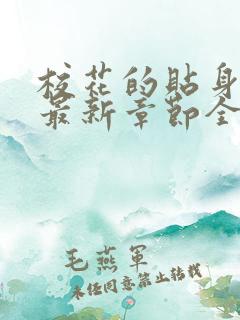 校花的贴身
最新章节全
毛燕军
未经同意禁止转载